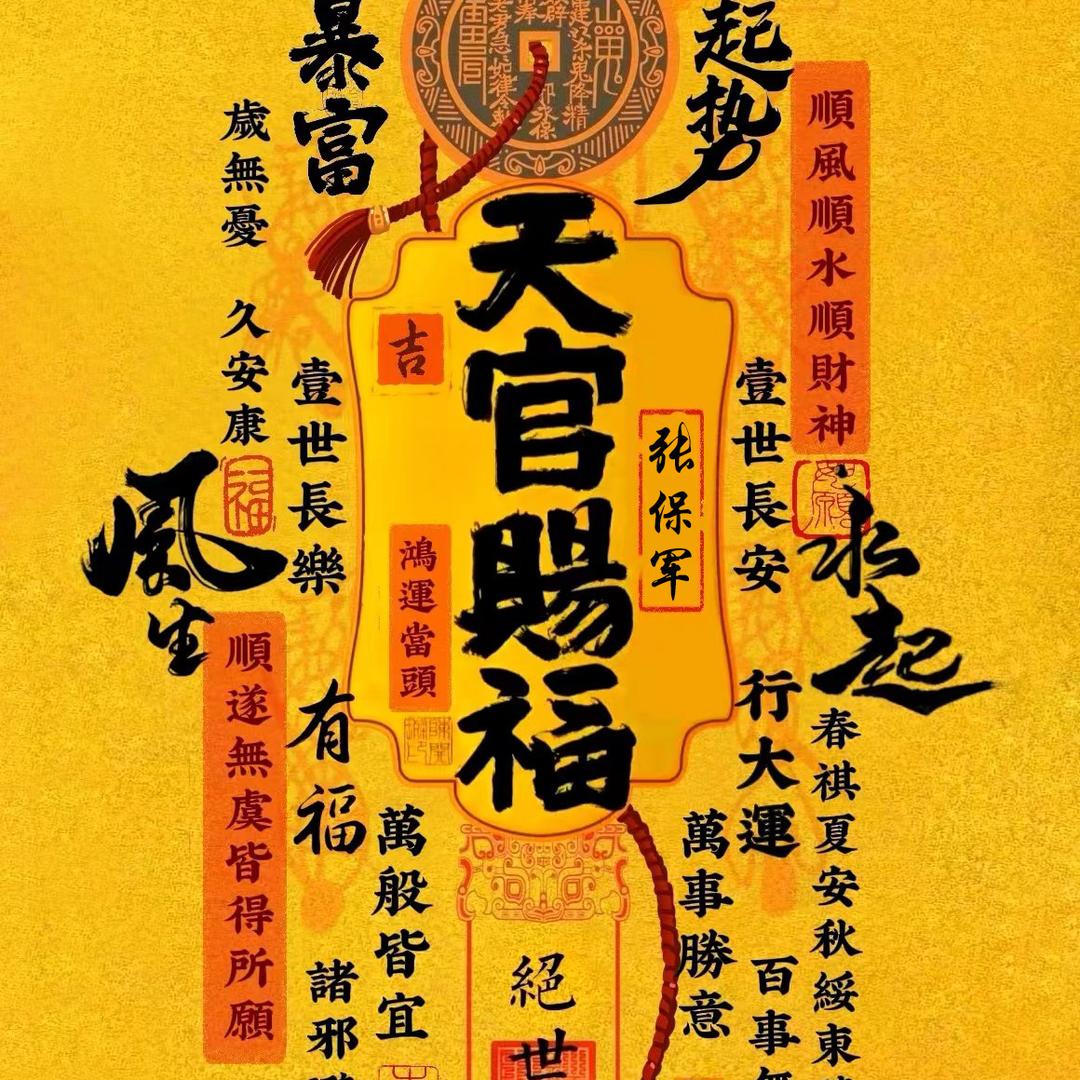 暴富
起势
順風順水順財神
歲無憂 久安康
天官賜福
吉
张保军
鴻運當頭
壹世長安
壹世長樂
風生
水起
福
順遂無虞皆得所願
有福
行大運
春祺夏安秋綏東
萬事勝意
萬般皆宜
百事無
諸邪
絕世